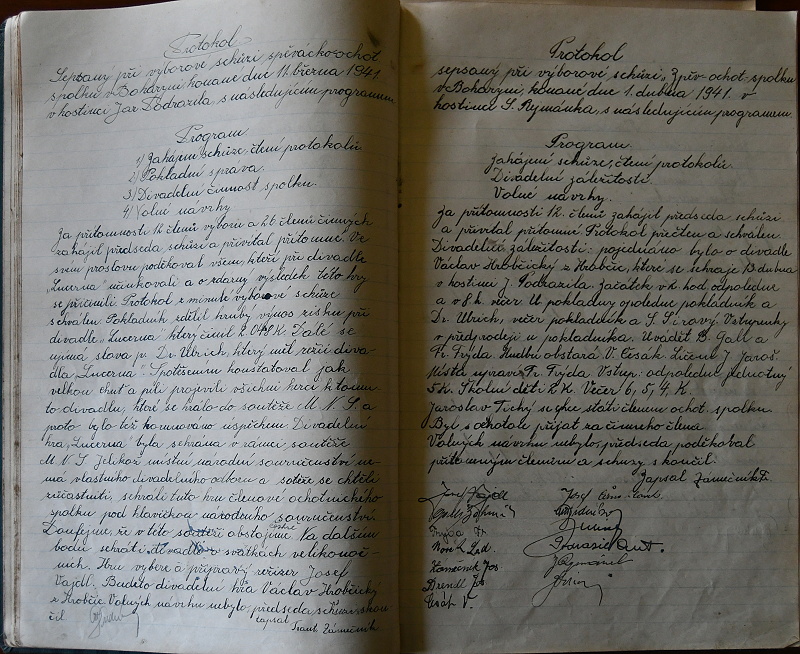 Protokol
Sepsaný při výborové schůzi spěvácko-ochot
spolku v Boharyni, konané dne 11. března 1941
v hostinci Jar. Podrazila, s následujícím programem
Program
1) Zahájení schůze, čtení protokolu
2) Pokladní zpráva.
3) Divadelní činnost spolku.
4) Volné návrhy
Za přítomnosti 12 členů výboru a 26 členů činných
zahájil předseda schůzi a přivítal přítomné. Ve
svém proslovu poděkoval všem, kteří při divadle
"Lucerna" účinkovali a o zdárný výsledek této hry
se přičinili. Protokol z minulé výborové schůze
schválen. Pokladník sdělil hrubý výnos zisku při
divadle "Lucerna" který činil 2.048 K. Dále se
ujímá slova p. Dr. Ulrich, který měl režii diva
dla "Lucerna". S potěšením konstatoval jak
velkou chuť a píli projevili všichni herci k tomu-
to divadlu, které se hrálo do soutěže M. N. S. a
proto bylo též korunováno úspěchem. Divadelní
hra "Lucerna" byla sehrána v rámci soutěže
M. N. S. Jelikož místní národní souručenství ne-
má vlastního divadelního odboru a soutěže se chtěli
zúčastniti, sehráli tuto hru členové ochotnického
spolku pod hlavičkou národního souručenství.
Doufejme, že v této soutěži čestně obstojíme. Na dalším
bodu sehráti divadlo o svátkách velikonoč-
ních. Hru vybere a připraví režizér Josef
Vajdl. Bude to divadelní hra Václav Hrobčický
z Hrobčic. Volných návrhu nebylo, předseda schůzi skon
čil
zapsal
Frant. Zámečník
Protokol
sepsaný při výborové schůzi "Zpěv-ochot-spolku
v Boharyni, konané dne 1. dubna 1941. v
hostinci S. Rymánka, s následujícím programem.
Program.
Zahájení schůze, čtení protokolu.
Divadelní záležitosti.
Volné návrhy.
Za přítomnosti 12. členů zahájil předseda schůzi
a přivítal přítomné. Protokol přečten a schválen.
Divadelní záležitosti: pojednáno bylo o divadle
Václav Hrobčický z Hrobčic, které se sehraje 13 dubna
v hostinci J. Podrazila. Začátek v hod. odpoledne
a v 8 h. večer. U pokladny opoledne pokladník a
Dr. Ulrich, večer pokladník a S. Sirový. Vstupenky
v předprodeji u pokladníka. Uvádět B. Gall a
Fr. Frýda. Hudbu obstará V. Cesák. Líčení J. Jaroš.
Místa upraví Fr. Frýda. Vstup: odpoledne jednotný
5 K. Školní děti 2 K. Večer 6, 5, 4, K.
Jaroslav Tichý se chce státi členem ochot. spolku.
Byl s ochotou přijat za činného člena
Volných návrhu nebylo, předseda poděkoval
přítomným členům a schůzi skončil.
Zapsal Zámečník Fr.
Josef Vajdl
Frýda Fr.
Novák Lad.
Hameník Jos
Brendl Jos
Cesák V.